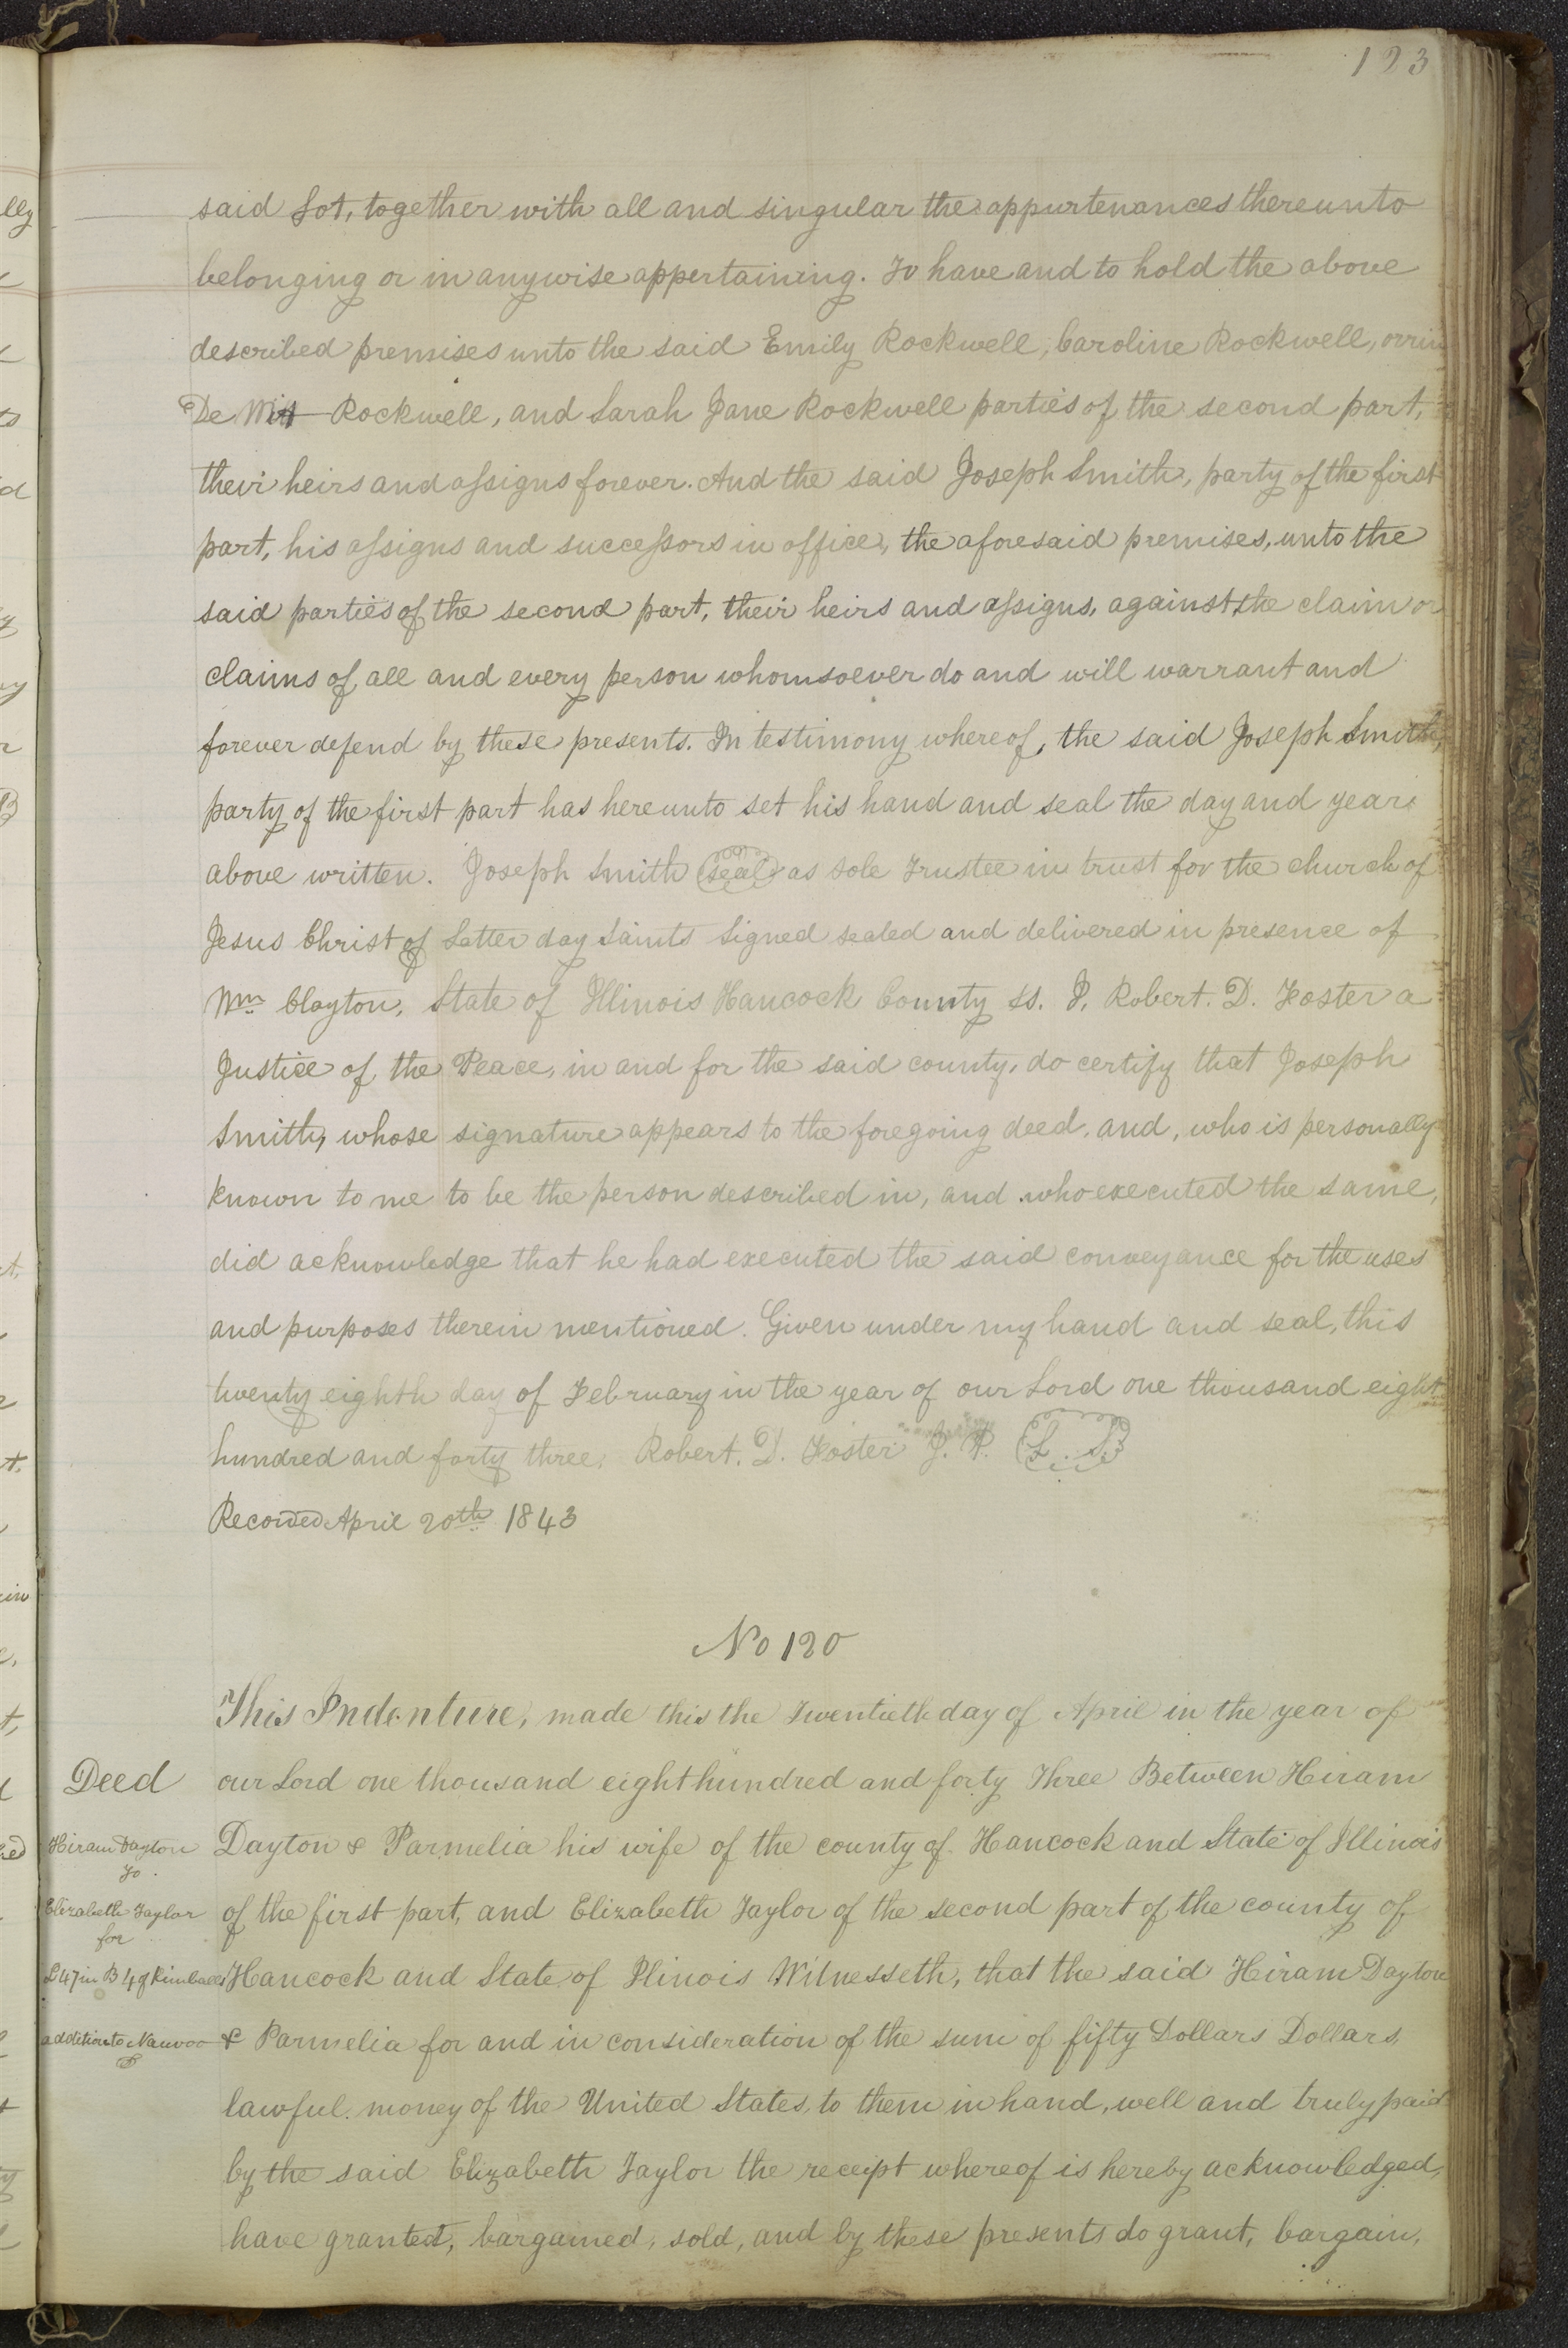 123
said Lot, together with all and singular the appurtenances thereunto
belonging or in anywise appertaining. To have and to hold the above
described premises unto the said Emily Rockwell, Caroline Rockwell, orrin
De Witt Rockwell, and Sarah Jane Rockwell parties of the second part,
their heirs and assigns forever. And the said Joseph Smith, party of the first
part, his assigns and successors in office, the aforesaid premises, unto the
said parties of the second part, their heirs and assigns, against the claim or
claims of all and every person whomsoever do and will warrant and
forever defend by these presents. In testimony whereof, the said Joseph Smith,
party of the first part has hereunto set his hand and seal the day and year
above written. Joseph Smith (seal) as sole Trustee in trust for the church of
Jesus Christ of Latter day Saints Signed sealed and delivered in presence of
Wm Clayton, State of Illinois Hancock County SS. I, Robert. D. Foster a
Justice of the Peace, in and for the said county, do certify that Joseph
Smith, whose signature appears to the foregoing deed, and, who is personally
known to me to be the person described in, and who executed the same,
did acknowledge that he had executed the said conveyance for the uses
and purposes therein mentioned. Given under my hand and seal, this
twenty eighth day of February in the year of our Lord one thousand eight
hundred and forty three. Robert. D. Foster J. P. (L. S.)
Recorded April 20th 1843
No 120
This Indenture, made this the Twentieth day of April in the year of
Deed
our Lord one thousand eight hundred and forty Three Between Hiram
Hiram Dayton
Dayton & Parmelia his wife of the county of Hancock and State of Illinois
To
Elizabeth Taylor
of the first part, and Elizabeth Taylor of the second part of the county of
for
L 47 in B 4 of Kimballs
Hancock and State of Illinois Witnesseth, that the said Hiram Dayton
addition to Nauvoo
& Parmelia for and in consideration of the sum of fifty Dollars Dollars,
lawful money of the United States, to them in hand, well and truly paid
by the said Elizabeth Taylor the receipt whereof is hereby acknowledged,
have granted, bargained, sold, and by these presents do grant, bargain,